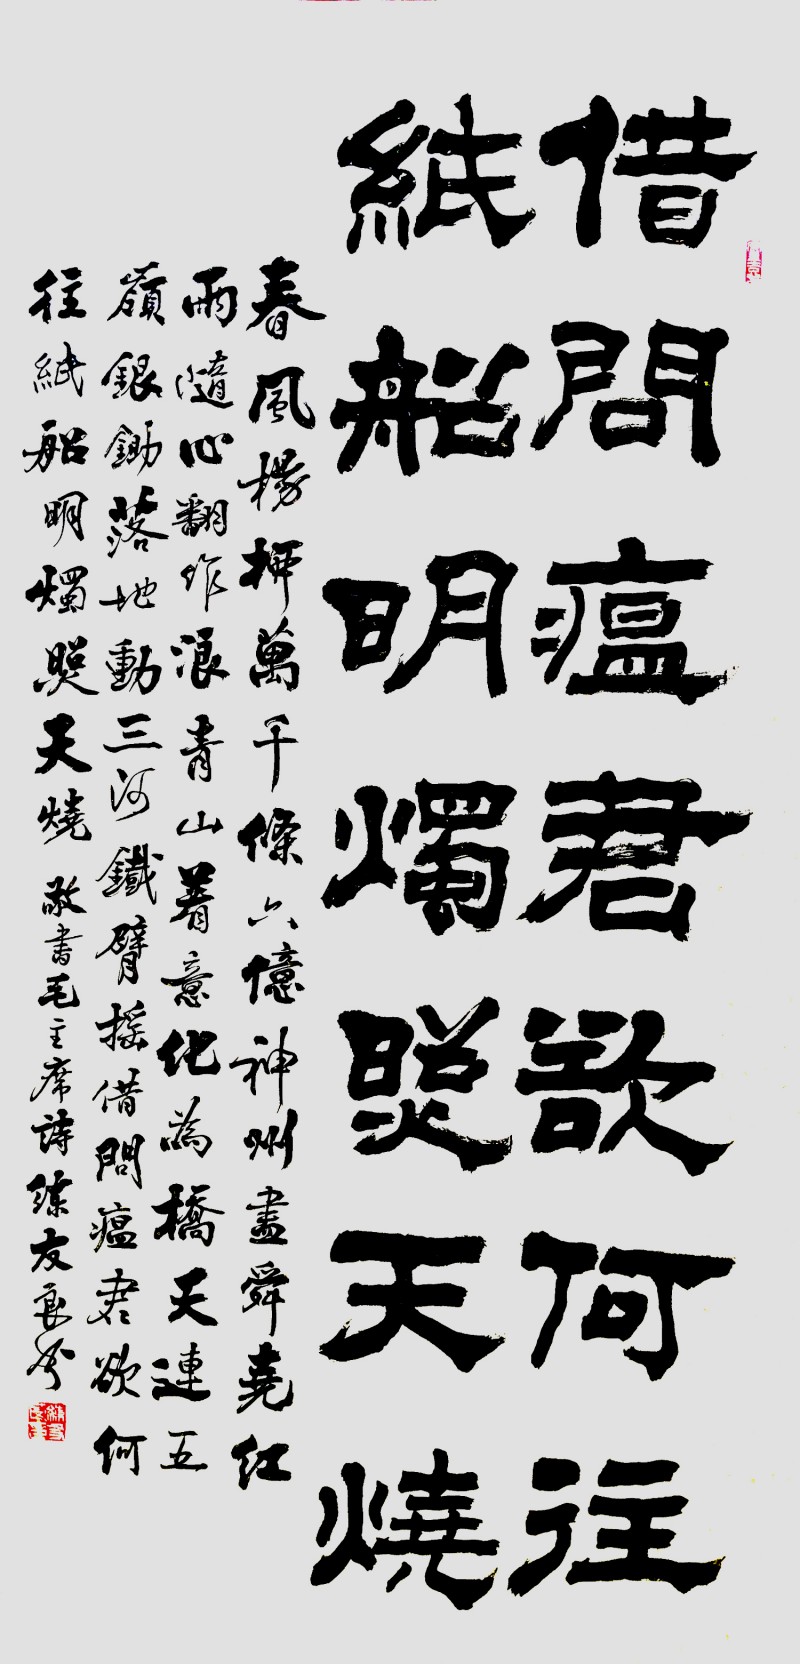 借問瘟君欲何往
紙船明燭照天燒
春風楊柳萬千條六億神州盡舜堯紅
雨隨心翻作浪青山著意化為橋天連五
嶺銀鋤落地動三河鐵臂搖借問瘟君欲何
往紙船明燭照天燒 敬書毛主席詩 練友良書